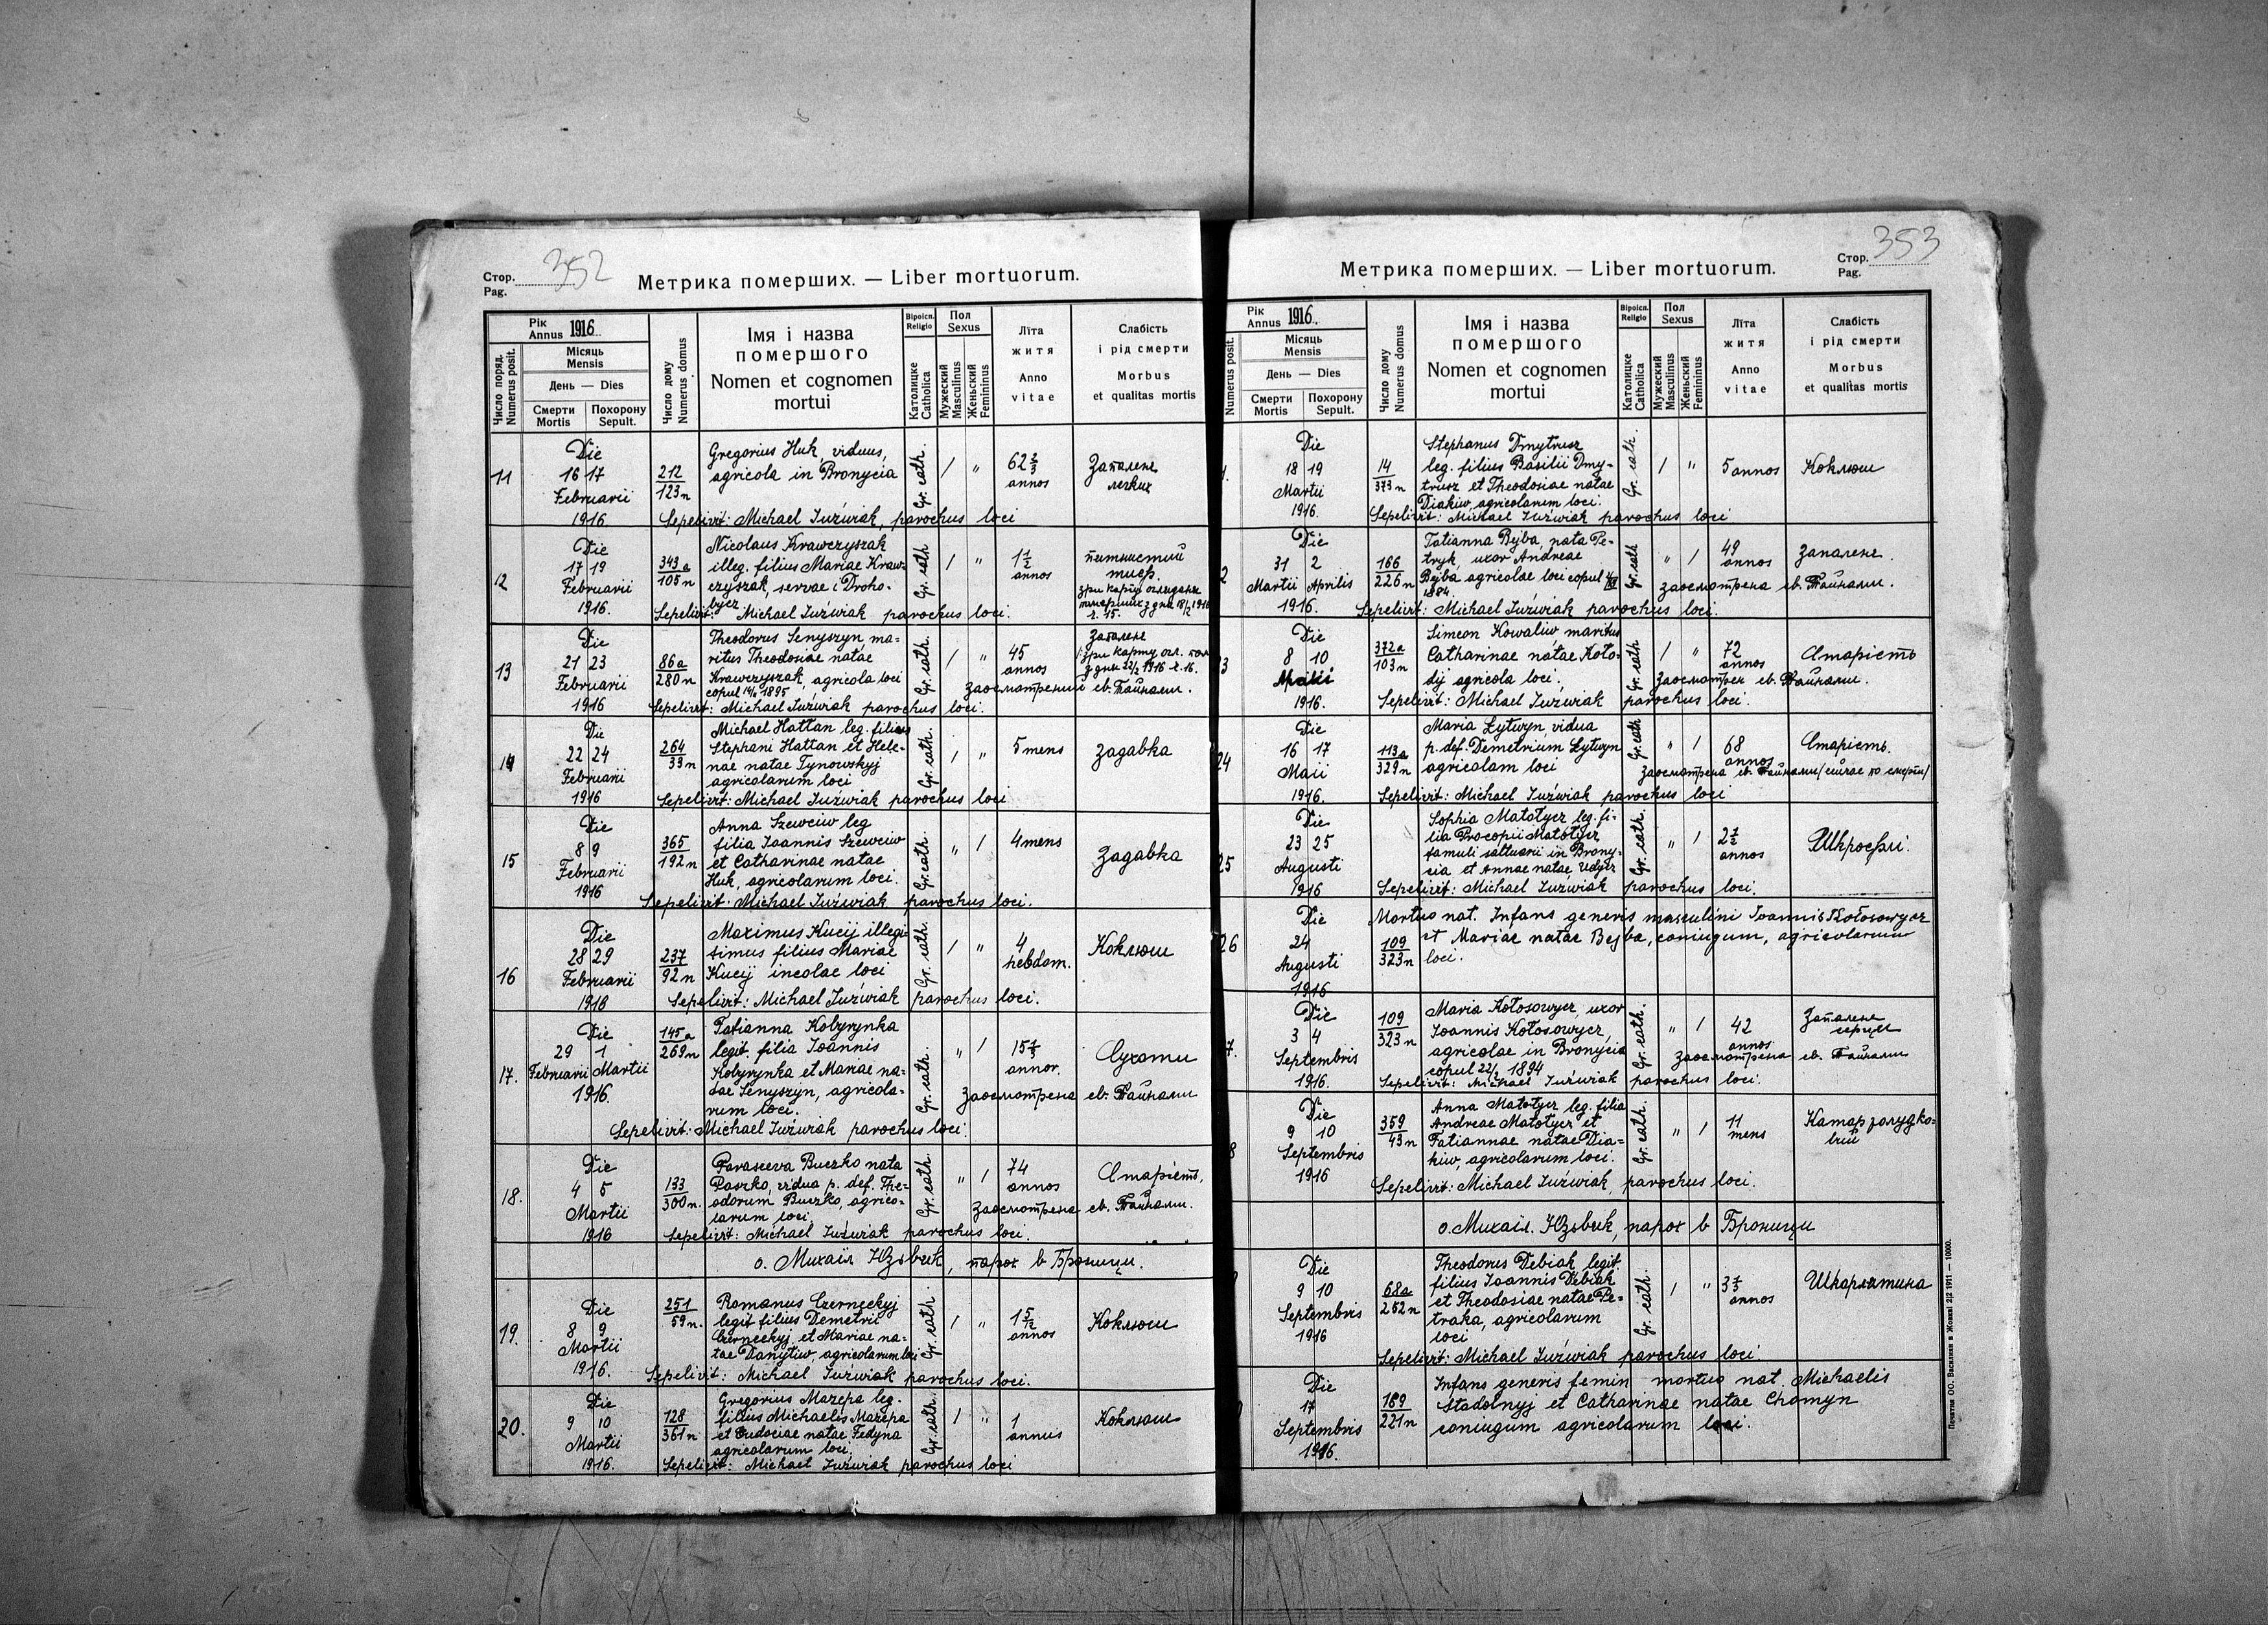 Стор. 352
Pag.
Метрика померших. — Liber mortuorum.
Рік
Annus 1916.
Місяць
Mensis
День — Dies
Смерти Похорону
Mortis Sepult.
Число поряд.
Numerus posit.
Число дому
Numerus domus
Імя і назва
помершого
Nomen et cognomen
mortui
Віроісп.
Religio
Католицке
Catholica
Пол
Sexus
Мужеский
Masculinus
Женьский
Femininus
Літа
житя
Anno
vitae
Слабість
і рід смерти
Morbus
et qualitas mortis
11
Die
16 17
Februarii
1916.
212
123 n
Gregorius Huk, viduus,
agricola in Bronycia
Gr. cath.
/ "
62 2/3
annos
Запалене
легких
Sepelivit: Michael Juźwiak, parochus loci
12
Die
17 19
Februarii
1916.
343 a
105 n
Nicolaus Krawczyszak
illeg. filius Mariae Kraw-
czyszak, servae i Droho-
bycz
Gr. cath
/ "
1 1/2
annos
пятнистий
тиф.
зри карту оглядин
померших з дня 18/2 1916
ч. 15.
Sepelivit: Michael Juźwiak parochus loci.
13
Die
21 23
Februarii
1916
86a
280 n
Theodorus Senyszyn ma-
ritus Theodosiae natae
Krawczyszak, agricola loci
copul 14/6 1895
Gr. cath.
/ "
45
annos
Запалене
зри карту огл. пом
з дня 22/2 1916 ч. 16.
Заосмотрений св. Тайнами.
Sepelivit: Michael Juźwiak parochus loci.
14
Die
22 24
Februarii
1916
264
33 n
Michael Hattan leg. filius
Stephani Hattan et Hele-
nae natae Tynowskyj
agricolarum loci
Gr. cath.
/ "
5 mens
задавка
Sepelivit: Michael Juźwiak parochus loci
15
Die
8 9
Februarii
1916
365
192 n
Anna Szewciw leg
filia Ioannis Szewciw
et Catharinae natae
Huk, agricolarum loci.
Gr. cath.
" /
4 mens
Задавка
Sepelivit. Michael Juźwiak parochus loci.
16
Die
28 29
Februarii
1916
237
92 n
Maximus Kucij illegi-
timus filius Mariae
Kucij incolae loci
Gr. cath.
/ "
4
hebdom.
Коклюш
Sepelivit: Michael Juźwiak parochus loci.
17.
Die
29 1
Februarii Martii
1916.
145 a
269 n
Tatianna Kobyrynka
legit. filia Ioannis
Kobyrynka et Mariae na-
tae Senyszyn, agricola-
rum loci.
Gr. cath.
" /
annor.
Сухоти
Заосмотрена св. Тайнами
Sepelivit: Michael Juźwiak parochus loci.
18.
Die
4 5
Martii
1916
133
300 n.
Parasceva Buczko nata
Paszko, vidua p. def. The-
odorum Buczko, agrico-
larum loci,
Gr. cath.
" /
74
annos
Старість,
Заосмотрена св. Тайнами.
Sepelivit: Michael Juźwiak parochus loci.
о. Михаїл Юзьвяк, парох в Броници.
19.
Die
8 9
Martii
1916.
251
59 n.
Romanus Czerneckyj
legit filius Demetrii
Czerneckyj et Mariae na-
tae Danytiw, agricolarum loci
Gr. cath.
/ "
1 5/12
annos
Коклюш
Sepelivit: Michael Juźwiak parochus loci.
20.
Die
9 10
Martii
1916.
128
361 n
Gregorius Mazepa leg.
filius Michaelis Mazepa
et Eudociae natae Fedyna
agricolarum loci,
Gr. cath.
/ "
1
annus
Коклюш
Sepelivit: Michael Juźwiak parochus loci
Стор. 353
Pag.
Метрика померших. — Liber mortuorum.
Рік
Annus 1916.
Місяць
Mensis
День — Dies
Смерти Похорону
Mortis Sepult.
Numerus posit.
Число дому
Numerus domus
Імя і назва
помершого
Nomen et cognomen
mortui
Віроісп.
Religio
Католицке
Catholica
Пол
Sexus
Мужеский
Masculinus
Женьский
Femininus
Літа
житя
Anno
vitae
Слабість
і рід смерти
Morbus
et qualitas mortis
1.
Die
18 19
Martii
1916.
14
373 n
Stephanus Dmytrusz
leg. filius Basilii Dmy-
trusz et Theodosiae natae
Diakiw, agricolarum loci.
Gr. cath.
/ "
5 annos
Коклюш
Sepelivit: Michael Juźwiak parochus loci
2
Die
31 2
Martii Aprilis
1916.
166
226 n
Tatianna Bejba, nata Pe-
tryk, uxor Andreae
Bejba agricolae loci copul
1884.
Gr. cath
" /
49
annos
Запалене.
заосмотрена св. Тайнами.
Sepelivit: Michael Juźwiak parochus loci.
3
Die
8 10
Aprilis
1916.
372a
103 n
Simeon Kowaliw maritus
Catharinae natae Koło-
dij agricola loci.
Gr. cath
/ "
72
annos
Старість
Заосмотрен св. Тайнами.
Sepelivit: Michael Juźwiak parochus loci.
24
Die
16 17
Maii
1916.
113a
329 n
Maria Łytwyn, vidua
p. def. Demetrium Łytwyn
agricolam loci
Gr. cath
" /
68
annos
Старість.
Заосмотрена св. Тайнами
Sepelivit: Michael Juźwiak parochus loci
25
Die
23 25
Augusti
1916
Sophia Matołycz leg. fi-
lia Procopii Matołycz
famuli saltuarii in Brony-
cia et Annae natae Udycz
Gr. cath.
" /
annos
Шкрофлі.
Sepelivit: Michael Juźwiak parochus loci.
26
Die
24
Augusti
1916
109
323 n
Mortuo nat. Infans generis masculini Ioannis Kołosowycz
et Mariae natae Bejba, coniugum, agricolarum
loci.
7.
Die
3 4
Septembris
1916.
109
323 n
Maria Kołosowycz, uxor
Ioannis Kołosowycz,
agricolae in Bronycia
copul 22/2 1894
Gr. cath.
" /
42
annos
Запалене
серця
Заосмотрена св. Тайнами
Sepelivit: Michael Juźwiak parochus loci.
8
Die
9 10
Septembris
1916
359
43 n
Anna Matołycz leg. filia
Andreae Matołycz et
Tatiannae natae Dia-
kiw, agricolarum loci.
Gr. cath.
" /
11
mens
Катар
Sepelivit: Michael Juźwiak, parochus loci.
о. Михаіл. Юзьвяк, парох в Броници
Die
9 10
Septembris
1916
68a
252 n
Theodorus Debiak legit.
filius Ioannis Debiak
et Theodosiae natae Pe-
traka, agricolarum
loci
Gr. cath.
/ "
annos
Шкарлятина
Sepelivit: Michael Juźwiak parochus loci.
Die
17
Septembris
1916.
189
221 n
Infans generis femin mortuo nat. Michaelis
Stadolnyj et Catharinae natae Chomyn
coniugum agricolarum loci.
Печатня ОО. Василиян в Жовкві 2|2 1911 — 10000.